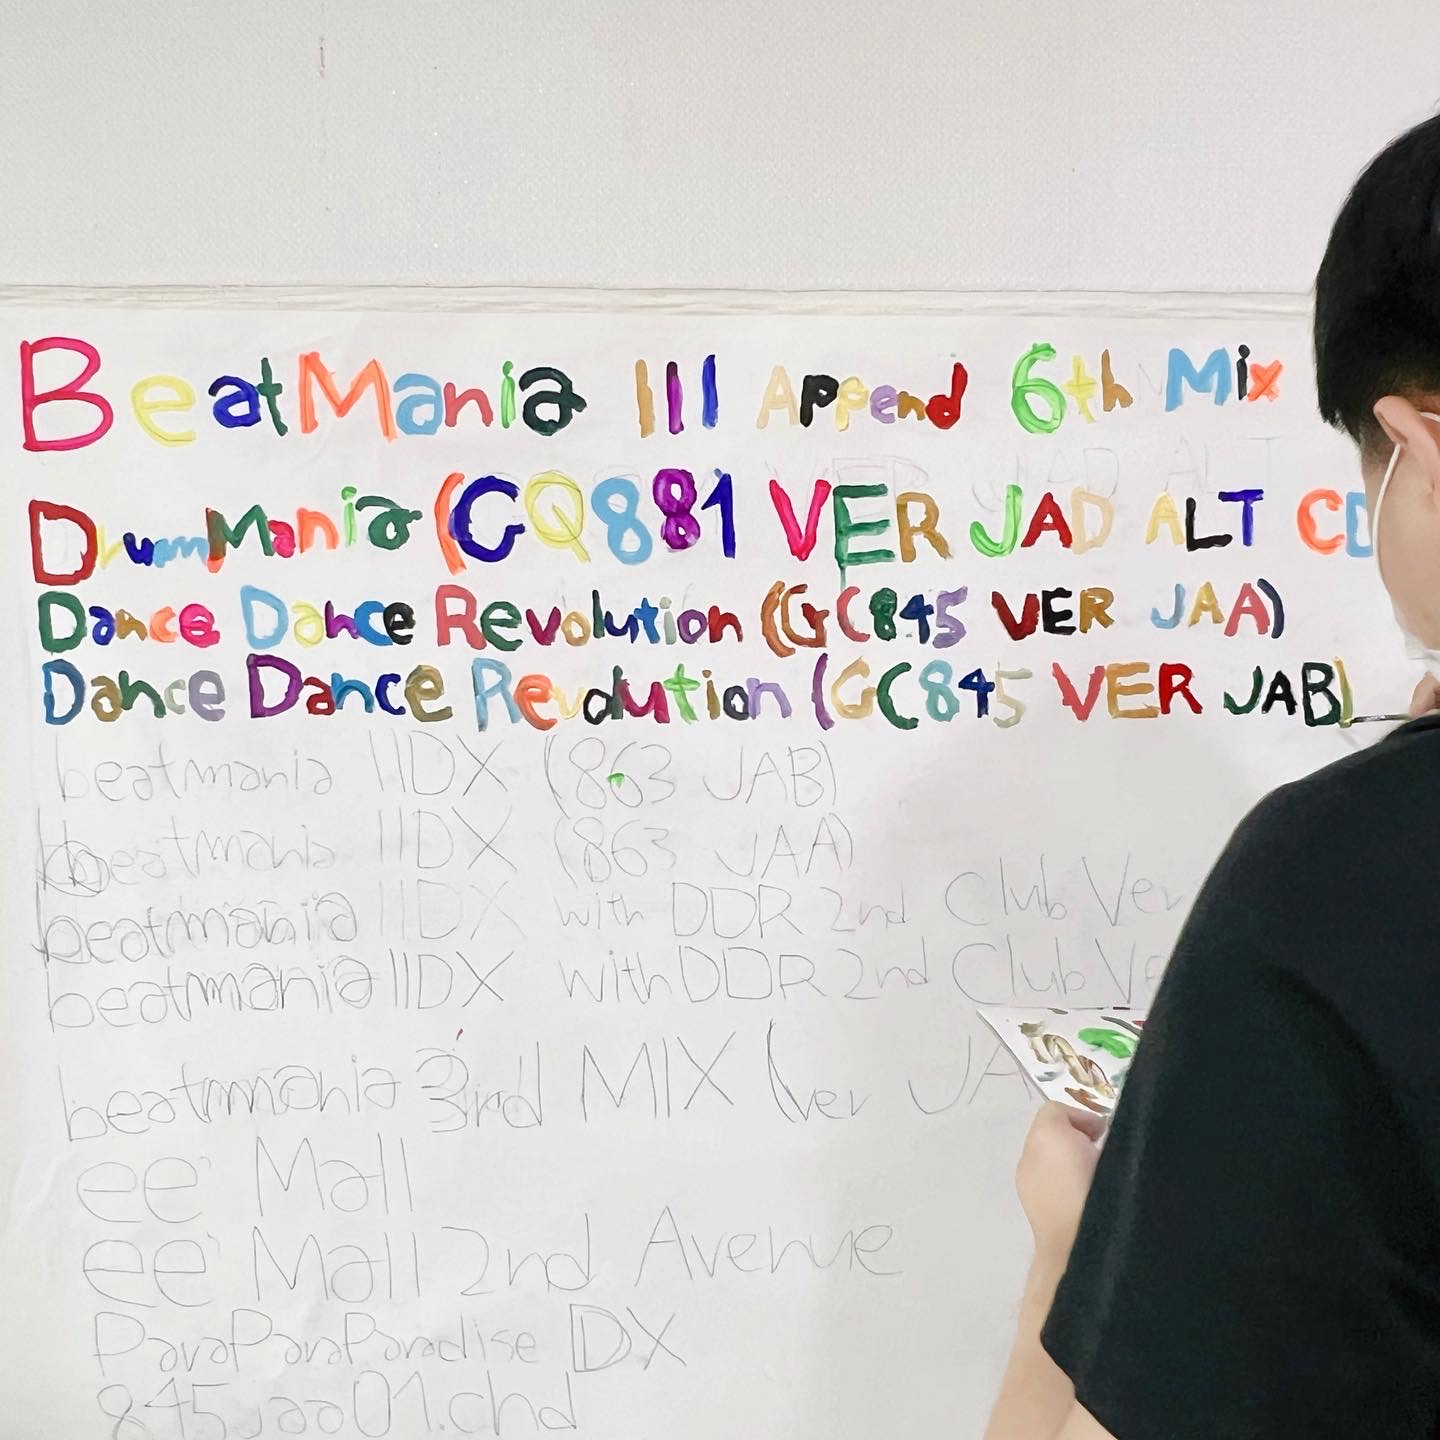 BeatMania III Append 6th Mix
DrumMania (GQ881 VER JAD ALT CD
Dance Dance Revolution (GC845 VER JAA)
Dance Dance Revolution (GC845 VER JAB)
beatmania IIDX (863 JAB)
beatmania IIDX (863 JAA)
beatmania IIDX with DDR 2nd Club Ver
beatmania IIDX with DDR 2nd Club Ve
beatmania 3rd MIX (ver JA
ee' Mall
ee' Mall 2nd Avenue
ParaParaParadise DX
845jaa01.chd